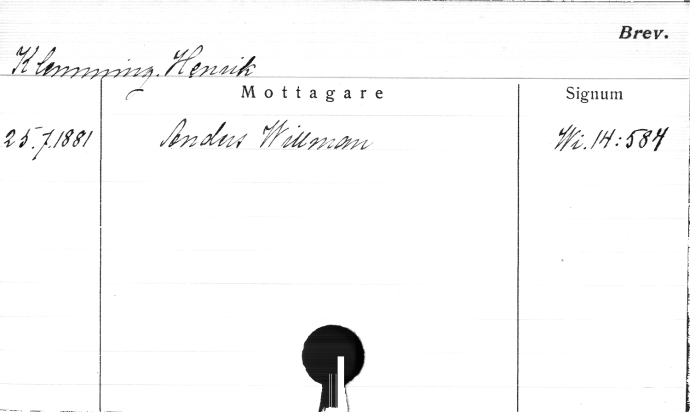 Brev.
Klemming, Henrik
Mottagare Signum
25.7.1881 Anders Willman Wi. 14:584